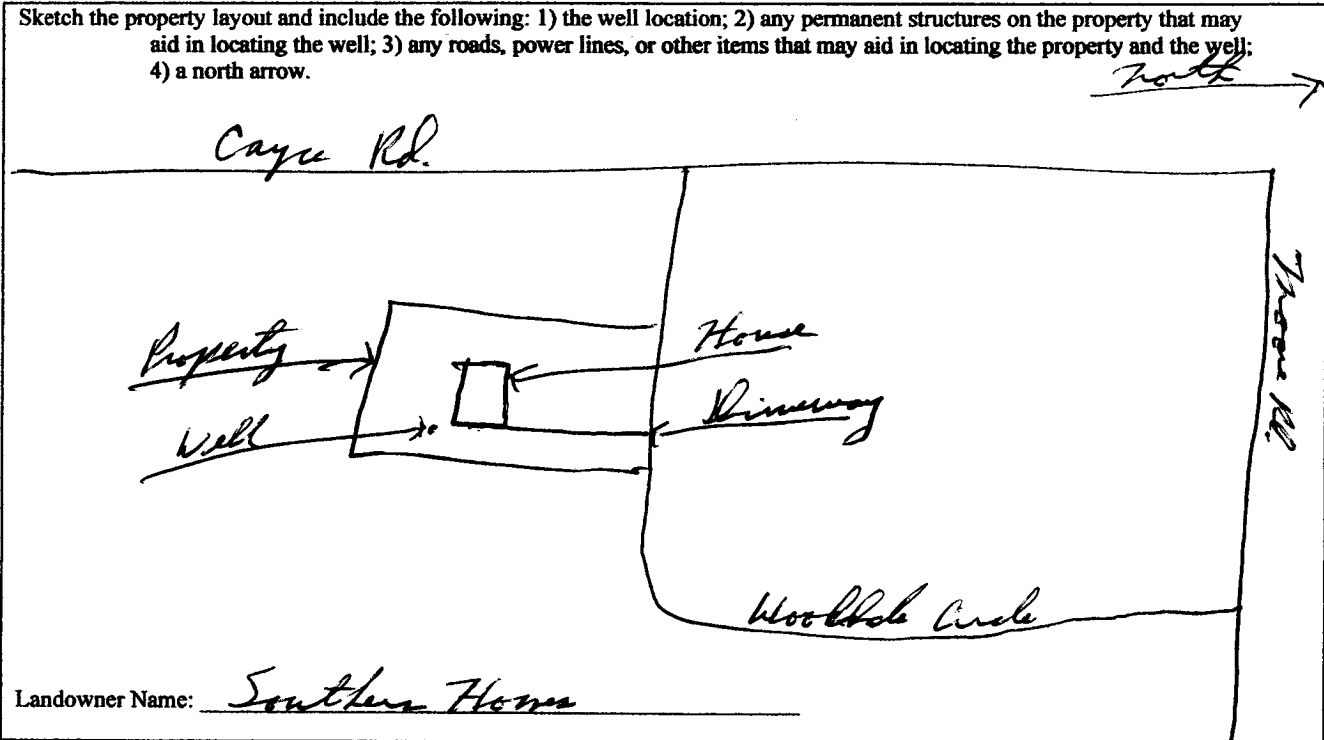 Sketch the property layout and include the following: 1) the well location; 2) any permanent structures on the property that may
aid in locating the well; 3) any roads, power lines, or other items that may aid in locating the property and the well;
4) a north arrow.
north
Cayce Rd.
House
Property
Driveway
Well
Rd.
Circle
Landowner Name: Southern Homes